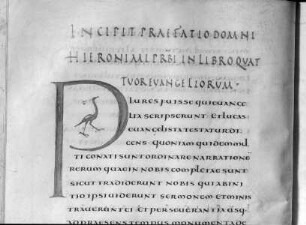 INCIPIT PRAEFATIO DOMNI
HIERONIMI PRBI IN LIBRO QUAT
TUOR EUANGELIORUM
PLURES FUISSE QUI EUANGE
LIA SCRIPSERUNT ET LUCAS
EUANGELISTA TESTATUR DI
CENS QUONIAM QUIDEM MUL
TI CONATI SUNT ORDINARE NARRATIONE
RERUM QUAE IN NOBIS COMPLETAE SUNT
SICUT TRADIDERUNT NOBIS QUI AB INI
TIO IPSI UIDERUNT SERMONEM ET MINIS
TRAUERUNT EI ET PERSEUERANTIA USQ
AD PRAESENS TEMPUS MONUMENTA DE